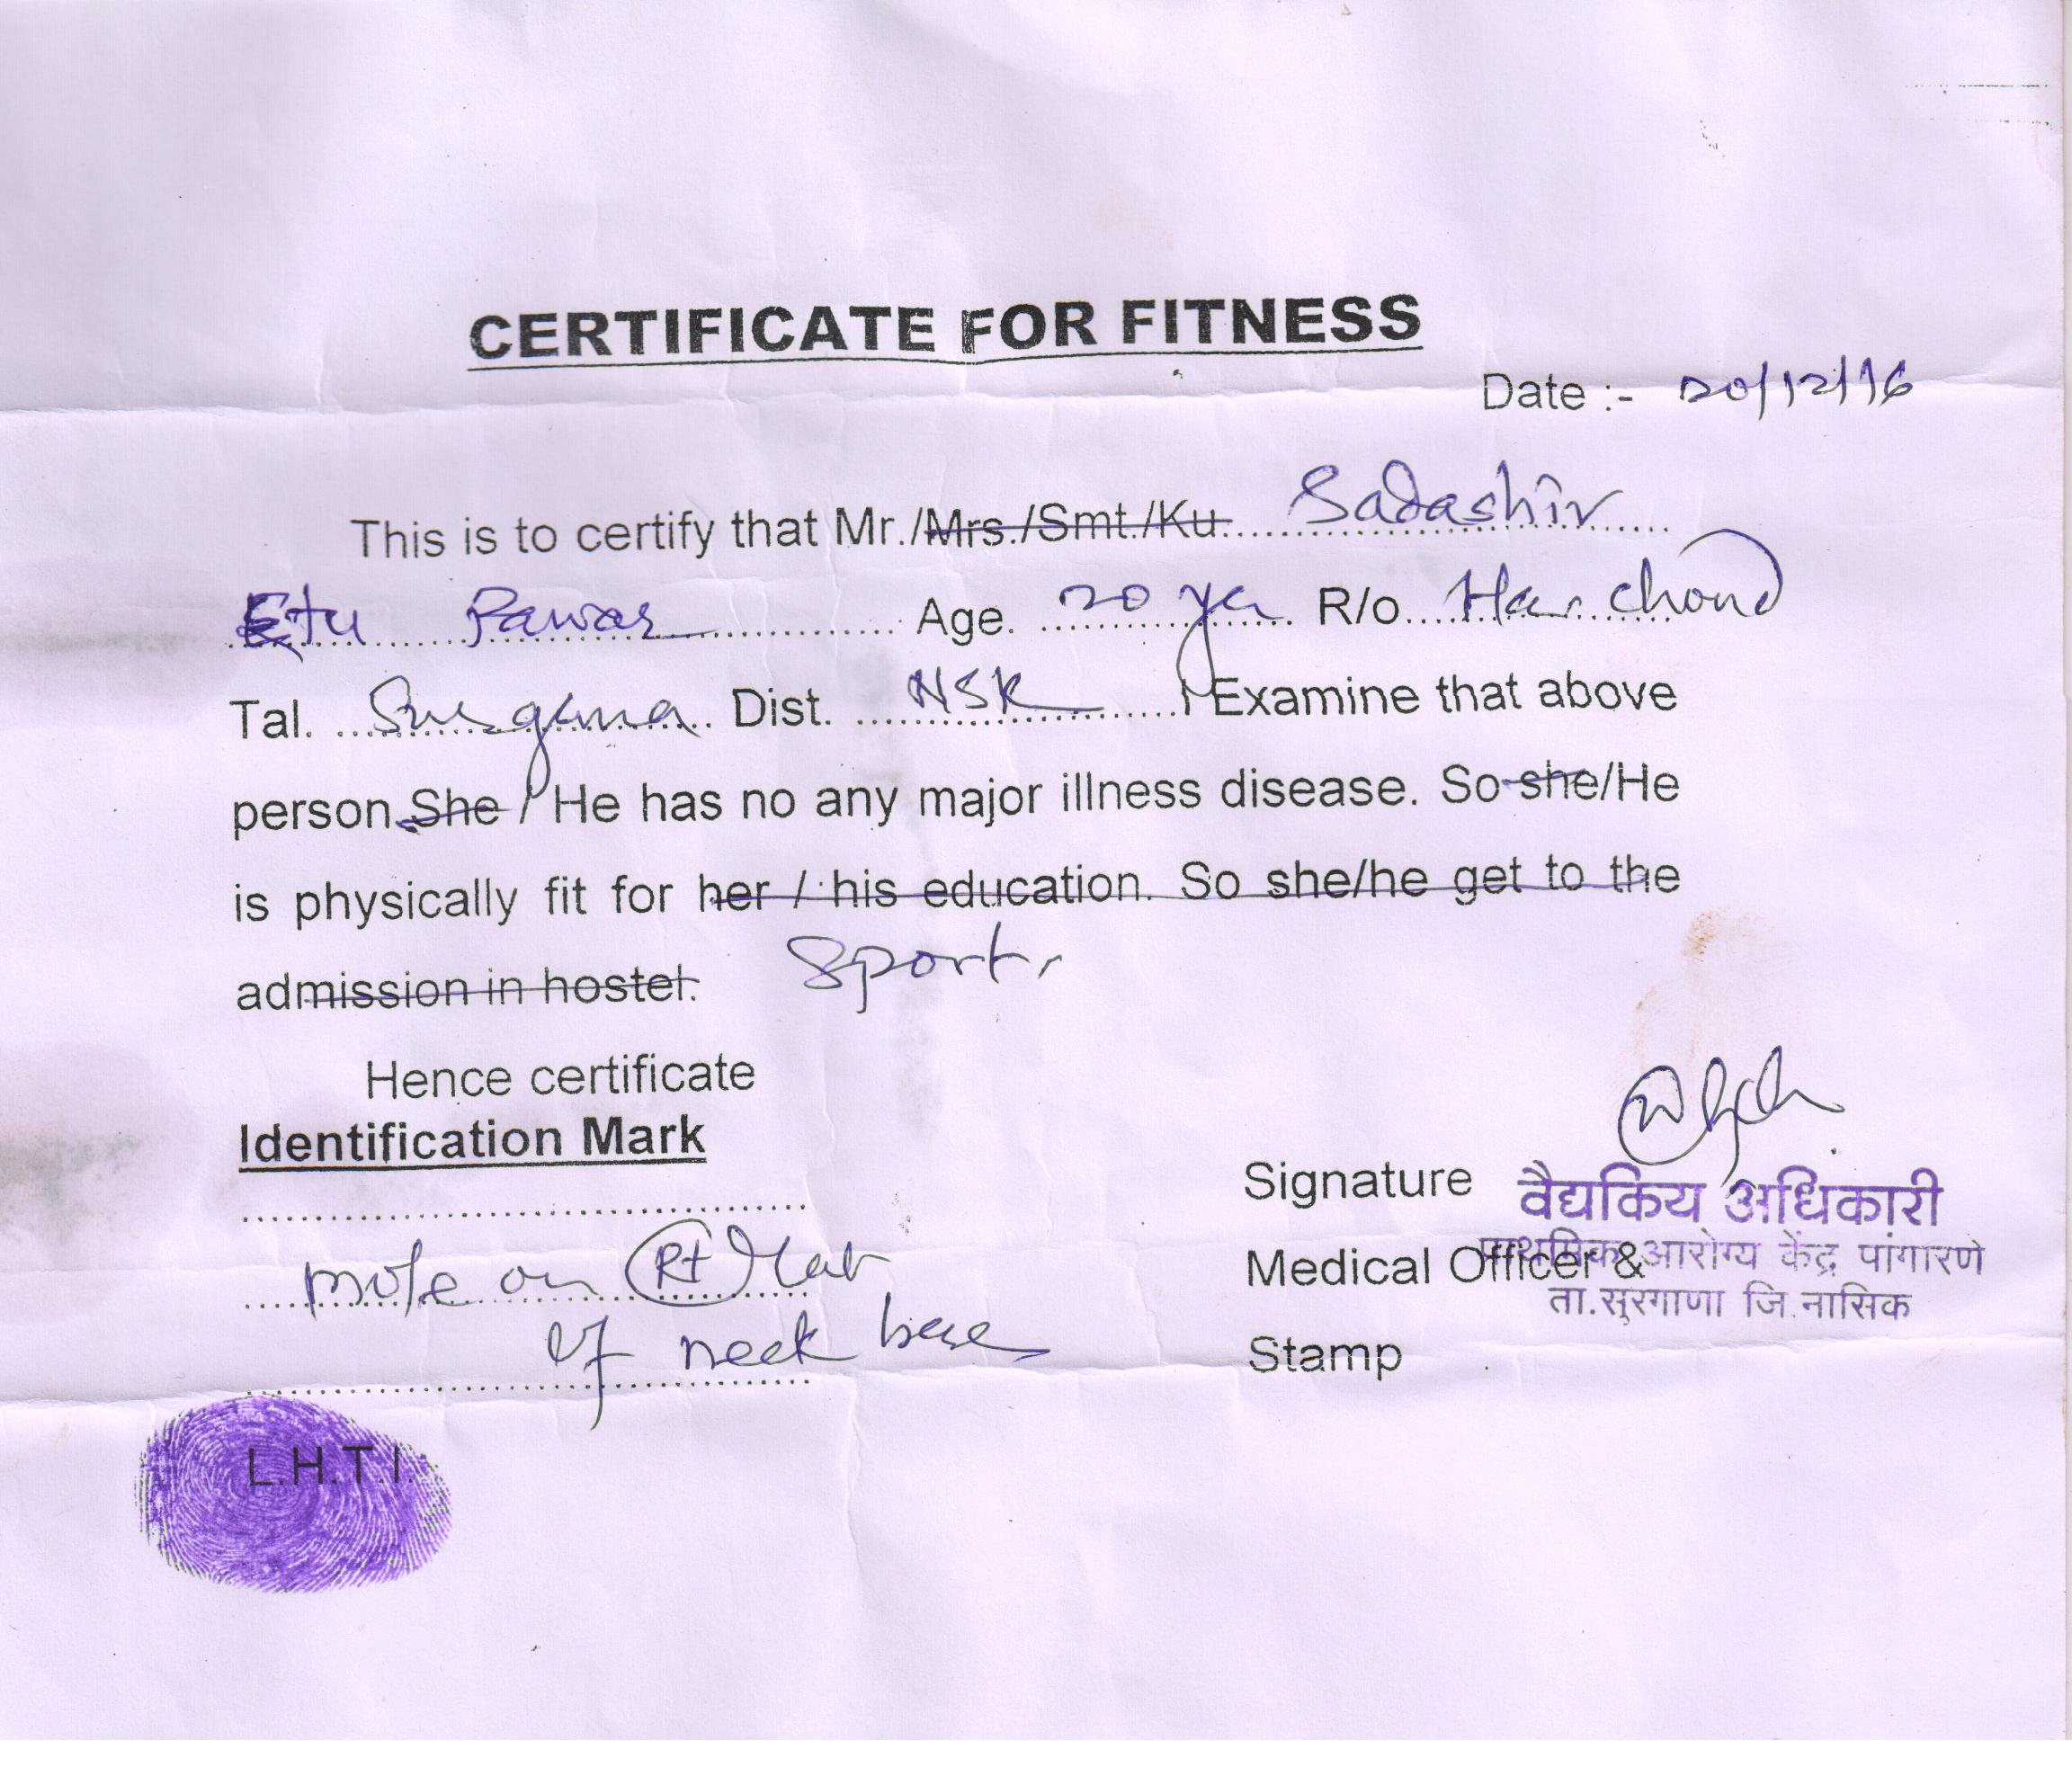 CERTIFICATE FOR FITNESS
Date :- 20/12/16
This is to certify that Mr./Mrs./Smt./Ku. Sadashiv
Etu Pawar Age. 20 yr R/o. Harchond
Tal. Surgana Dist. NSK I Examine that above
person She / He has no any major illness disease. So she/He
is physically fit for her / his education. So she/he get to the
admission in hostel. Sport,
Hence certificate
Identification Mark
mole on Rt
of neck base
L.H.T.I.
Signature
वैद्यकिय अधिकारी
Medical Officer &
प्राथमिक आरोग्य केंद्र पांगारणे
ता.सुरगाणा जि.नासिक
Stamp